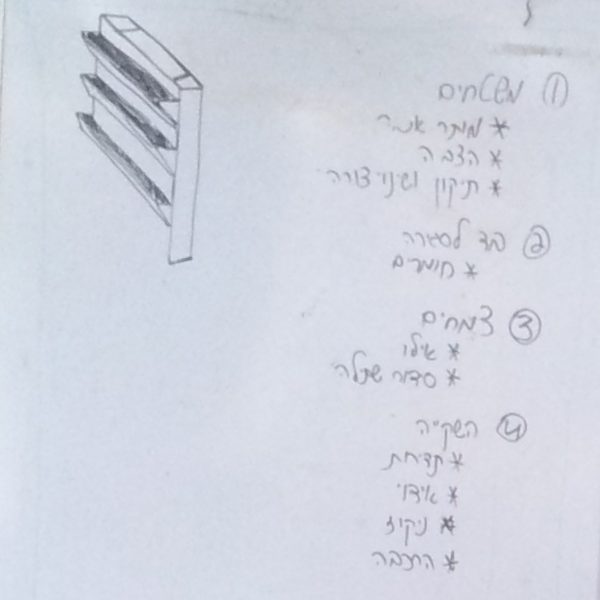 ① משטחים
* מותר אנכי
* הצבה
* תיקון ושינוי צורה
② בד לסגירה
* חומרים
③ צמחים
* אילו
* סדור שתלה
④ השקייה
* תדירות
* אידוי
* ניקוז
* הרכבה